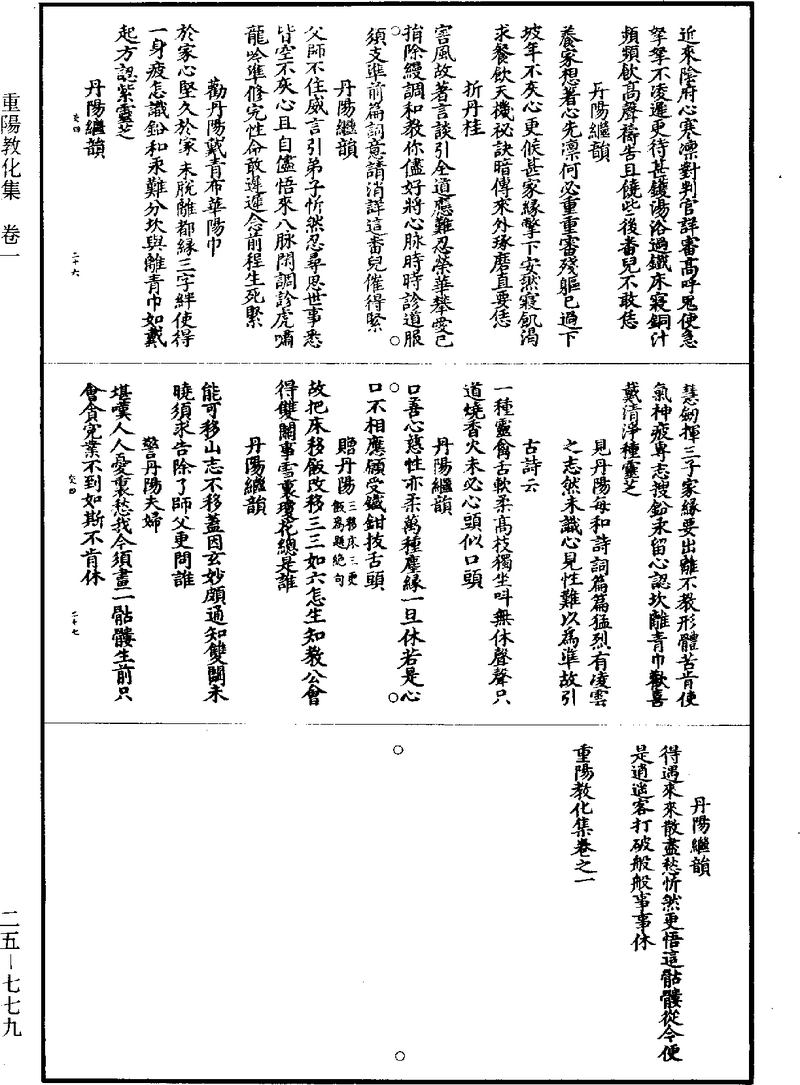 近來陰府心寒凛對判官詳審高呼鬼使急
拏拏不凌遲更待甚鑊湯浴過鐵床寢銅汁
頻頻飲高聲禱告且饒些後番兒不敢恁
丹陽繼韻
養家想着心先凛何必重重審殘軀已過下
坡年不灰心更候甚家緣擊下安然寢飢渴
求餐飲天機祕訣暗傳來外琢磨直要恁
折丹桂
害風故著言談引全道應難忍榮華攀愛已
捐除緩調和教你儘好將心脉時時診道服
須支準前篇詞意請消詳這番兒催得緊
丹陽繼韻
父師不住威言引弟子忻然忍尋思世事悉
皆空不灰心且自儘悟來八脉閑調診虎嘯
龍吟準修完性命敢遲遲念前程生死緊
勸丹陽戴青布華陽巾
於家心堅久於家未脫離都緣三字絆使得
一身疲怎識鉛和汞難分坎與離青巾如戴
起方認紫靈芝
丹陽繼韻
交四
二十六
慧劒揮三子家緣要出離不教形體苦肯使
氣神疲專志搜鉛汞留心認坎離青巾歡喜
戴清淨種靈芝
見丹陽每和詩詞篇篇猛烈有凌雲
之志然未識心見性難以為準故引
古詩云
一種靈禽舌軟柔高枝獨坐叫無休聲聲只
道燒香火未必心頭似口頭
丹陽繼韻
口善心慈性亦柔萬種塵緣一旦休若是心
口不相應願受鐵鉗拔舌頭
贈丹陽三移床三更飯為題絕句
故把床移飯改移三三如六怎生知教公會
得雙關事雪裏瓊花總是誰
丹陽繼韻
能可移山志不移蓋因玄妙頗通知雙關未
曉須求告除了師父更問誰
警丹陽夫婦
堪嘆人人憂裏愁我今須畫一骷髏生前只
會貪寃業不到如斯不肯休
交四
二十七
丹陽繼韻
得遇來來散盡愁忻然更悟這骷髏從今便
是逍遙客打破般般事事休
重陽教化集卷之一
重陽教化集　卷一
二五—七七九